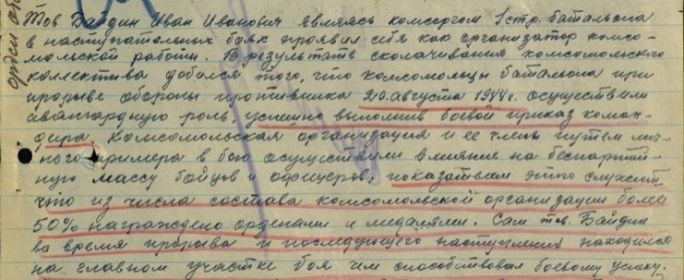 Тов Байдин Иван Иванович являясь комсоргом 1 стр. батальона
в наступательных боях проявил себя как организатор комсо-
мольской работы. В результате сколачивания комсомольского
коллектива добился того, что комсомольцы батальона при
прорыве обороны противника 20 августа 1944 г. осуществили
авангардную роль, успешно выполнив боевой приказ коман-
дира, комсомольская организация и ее члены путем лич-
ного примера в бою осуществили влияние на беспартий-
ную массу бойцов и офицеров, показателем этого служит
что из числа состава комсомольской организации более
50% награждено орденами и медалями. Сам тов. Байдин
во время прорыва и последующего наступления находился
на главном участке боя чем способствовал боевому успеху.
Орден